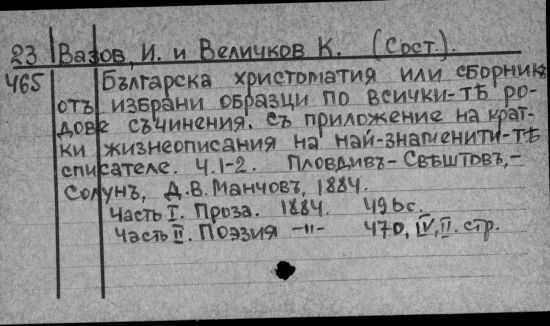 23 Вазов, И. и Величков К. (Сост.).
465 Българска христоматия или сборникъ
отъ избрани образци по всички-тѣ ро-
дове съчинения. Съ приложение на крат-
ки жизнеописания на най-знаменити-тѣ
списателе. Ч.1-2. Пловдивъ - Свѣштовъ, -
Солунъ, Д.В. Манчовъ, 1884.
Часть I. Проза. 1884. 496 с.
Часть II. Поэзия -II- 470, IV, II. стр.